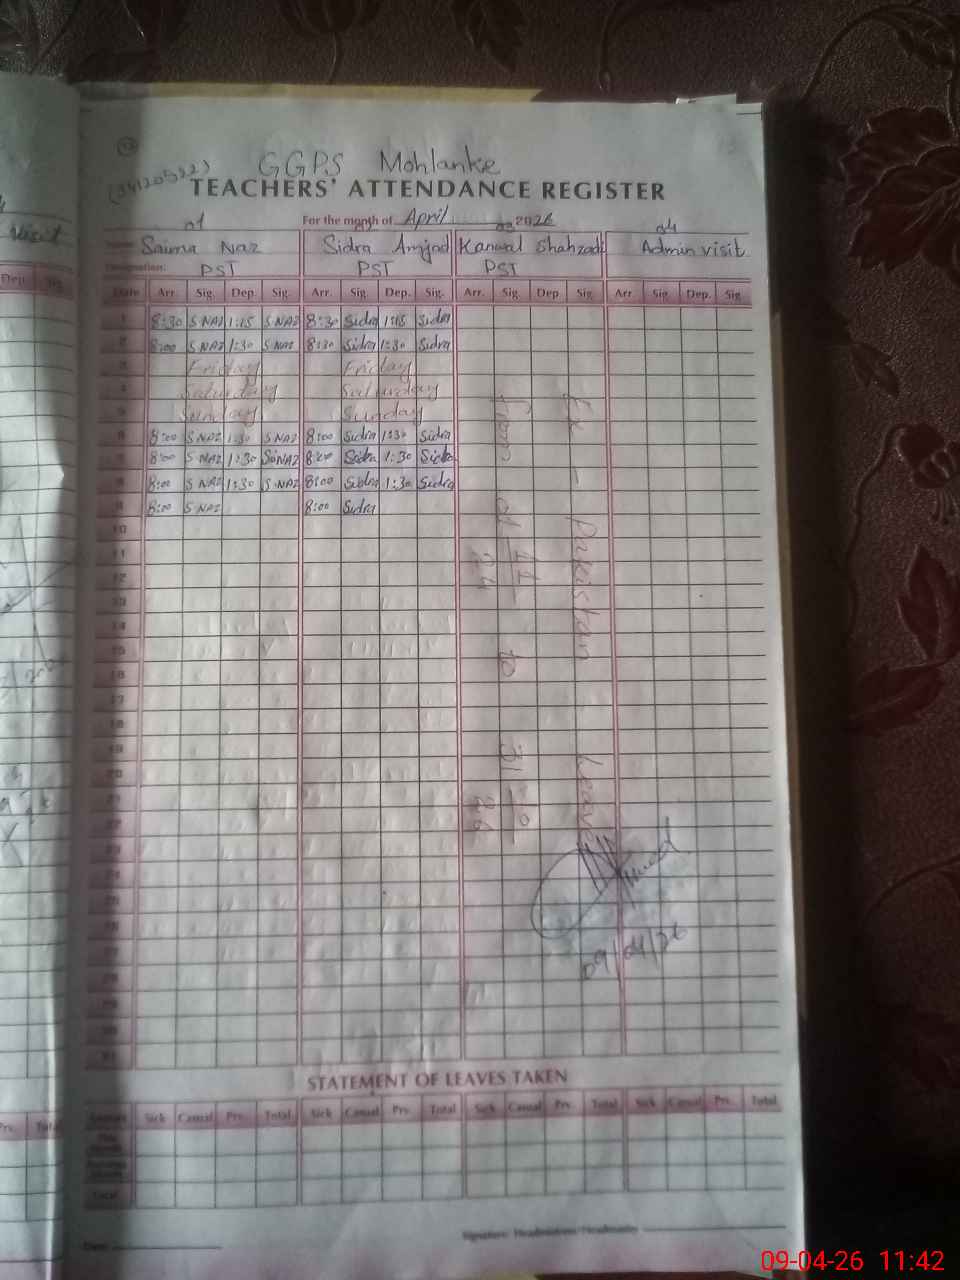 GGPS Mohlanke
(34120522)
TEACHERS' ATTENDANCE REGISTER
For the month of April 2026
01 03 04
Name Saima Naz Sidra Amjad Kanwal Shahzadi Admin visit
Designation: PST PST PST
Date Arr. Sig. Dep. Sig. Arr. Sig. Dep. Sig. Arr. Sig Dep Sig. Arr Sig. Dep. Sig
1 8:30 S NAZ 1:15 S NAZ 8:30 Sidra 1:15 Sidra
2 8:00 S NAZ 1:30 S NAZ 8:30 Sidra 1:30 Sidra
3 Friday Friday
4 Saturday Saturday
5 Sunday Sunday
6 8:00 S NAZ 1:30 S NAZ 8:00 Sidra 1:30 Sidra
7 8:00 S NAZ 1:30 S NAZ 8:00 Sidra 1:30 Sidra
8 8:00 S NAZ 1:30 S NAZ 8:00 Sidra 1:30 Sidra
9 8:00 S NAZ 8:00 Sidra
10
11
12
13
14
15
16
17
18
19
20
21
22
23
24
25
26
27
28
29
30
31
Ex - Pakistan Leave
from 01-11-24 to 31-10-26
09/04/26
STATEMENT OF LEAVES TAKEN
Sick Casual Prv. Total Sick Casual Prv. Total Sick Casual Prv. Total Sick Casual Prv. Total
Total
Signature Headmistress/Headmaster
Date
visit
Dep. Sig.
Prv. Total
09-04-26 11:42